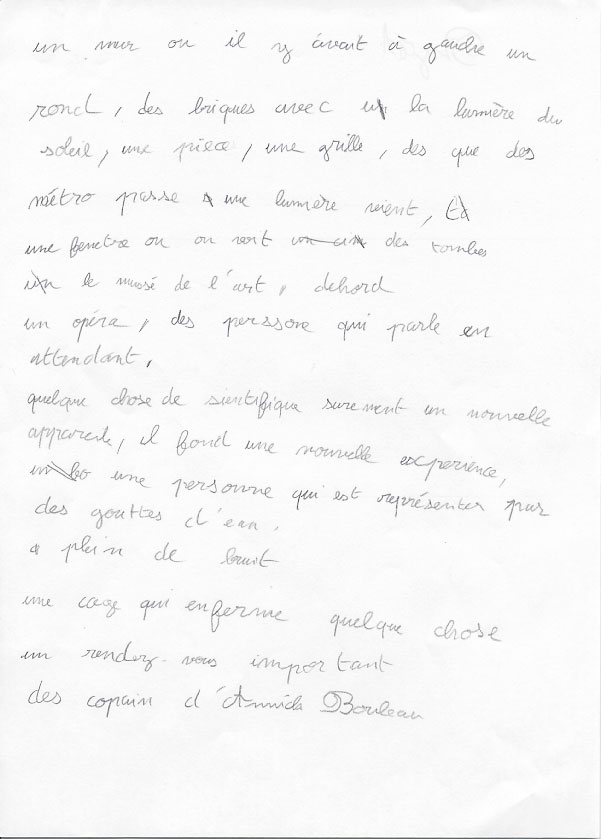 un mur ou il y avait à gaudre un
rond, des briques avec la lumière du
soleil, une pièce, une grille, des que des
métro passe une lumière vient,
une fenetre ou on voit des tombes
le mussé de l'art, dehord
un opéra, des perssone qui parle en
attendant,
quelque chose de sientifique surement un nouvelle
appareile, il fond une nouvelle experience,
une personne qui est représenter par
des gouttes d'eau.
plein de bruit
une cage qui enferme quelque chose
un rendez-vous important
des copain d'Annida Bouleau